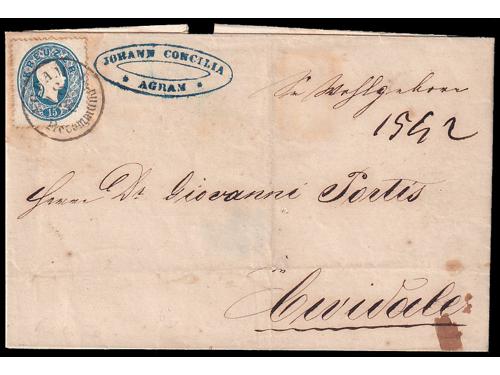 KREUZER
15
JOHANN CONCILIA
* AGRAM *
Sr Wohlgeborn
1542
Herrn Dr Giovanni Portis
in
Cividale